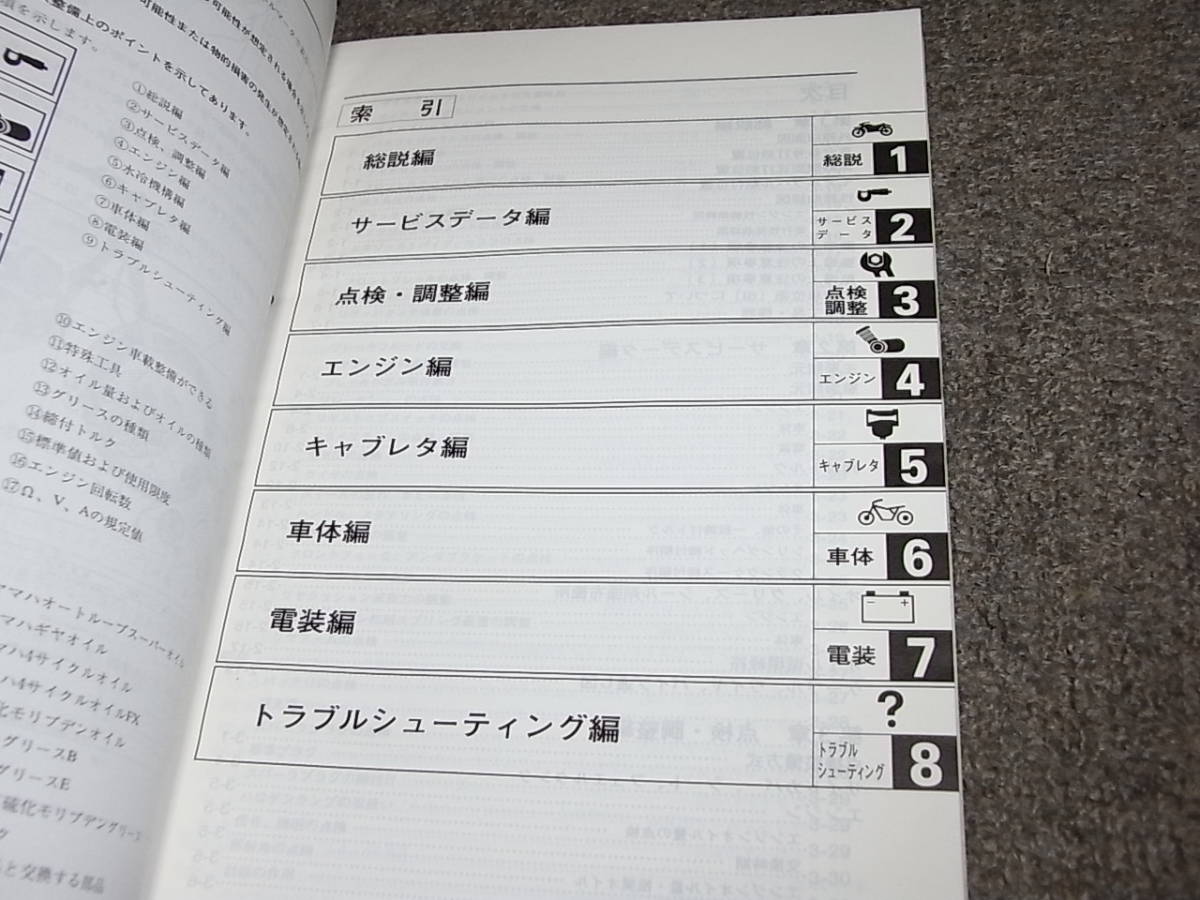 整備上のポイントを示してあります。
①総説編
②サービスデータ編
③点検、調整編
④エンジン編
⑤水冷機構編
⑥キャブレタ編
⑦車体編
⑧電装編
⑨トラブルシューティング編
⑩エンジン車載整備ができる
⑪特殊工具
⑫オイル量およびオイルの種類
⑬グリースの種類
⑭締付トルク
⑮標準値および使用限度
⑯エンジン回転数
⑰Ω、V、Aの規定値
マハオートルーブスーパーオイル
マハギヤオイル
マハ4サイクルオイル
ハ4サイクルオイルFX
化モリブデンオイル
グリースB
グリースE
硫化モリブデングリース
と交換する部品
索 引
総説編
総説 1
サービスデータ編
サービス
データ 2
点検・調整編
点検
調整 3
エンジン編
エンジン 4
キャブレタ編
キャブレタ 5
車体編
車体 6
電装編
電装 7
トラブルシューティング編
?
トラブル
シューティング 8